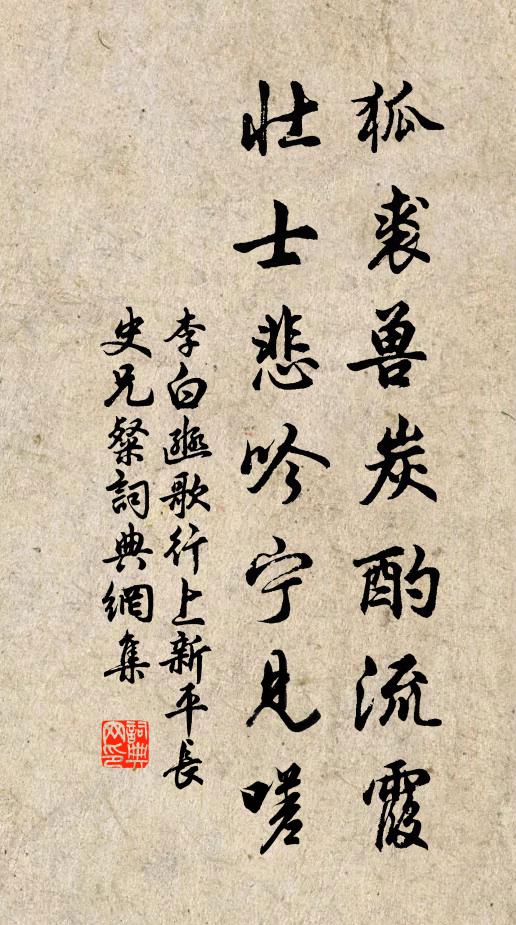 狐裘兽炭酌流霞
壮士悲吟宁见嗟
李白豳歌行上新平長
史兄粲詞典網集
詞典
网印